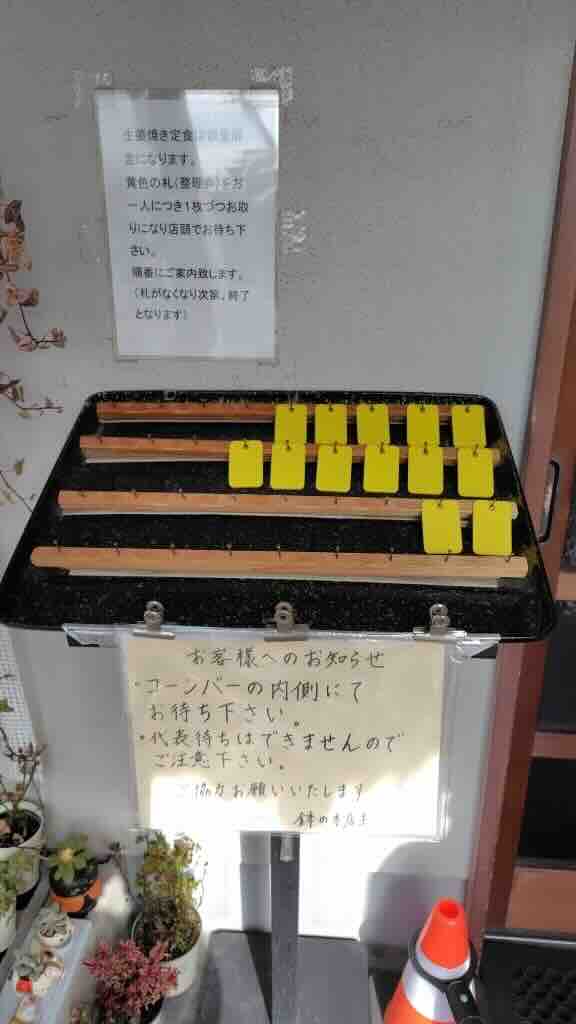 生姜焼き定食は数量限
定になります。
黄色の札(整理券)をお
一人につき1枚づつお取
りになり店頭でお待ち下
さい。
順番にご案内致します。
(札がなくなり次第、終了
となります)
お客様へのお知らせ
・コーンバーの内側にて
お待ち下さい。
・代表待ちはできませんので
ご注意下さい。
ご協力お願いいたします
店主